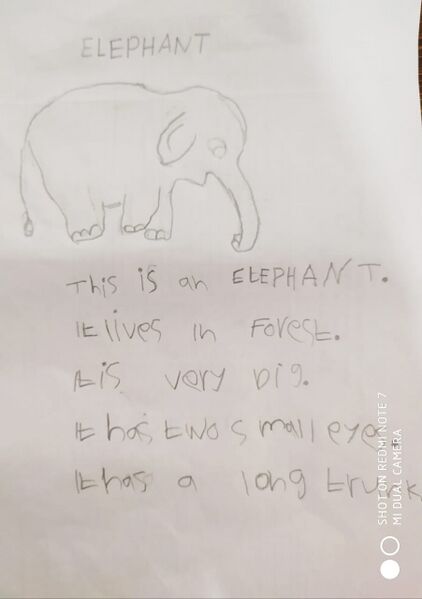 ELEPHANT
This is an ELEPHANT.
It lives in Forest.
It is very big.
It has two small eyes
It has a long trunk
SHOT ON REDMI NOTE 7
MI DUAL CAMERA